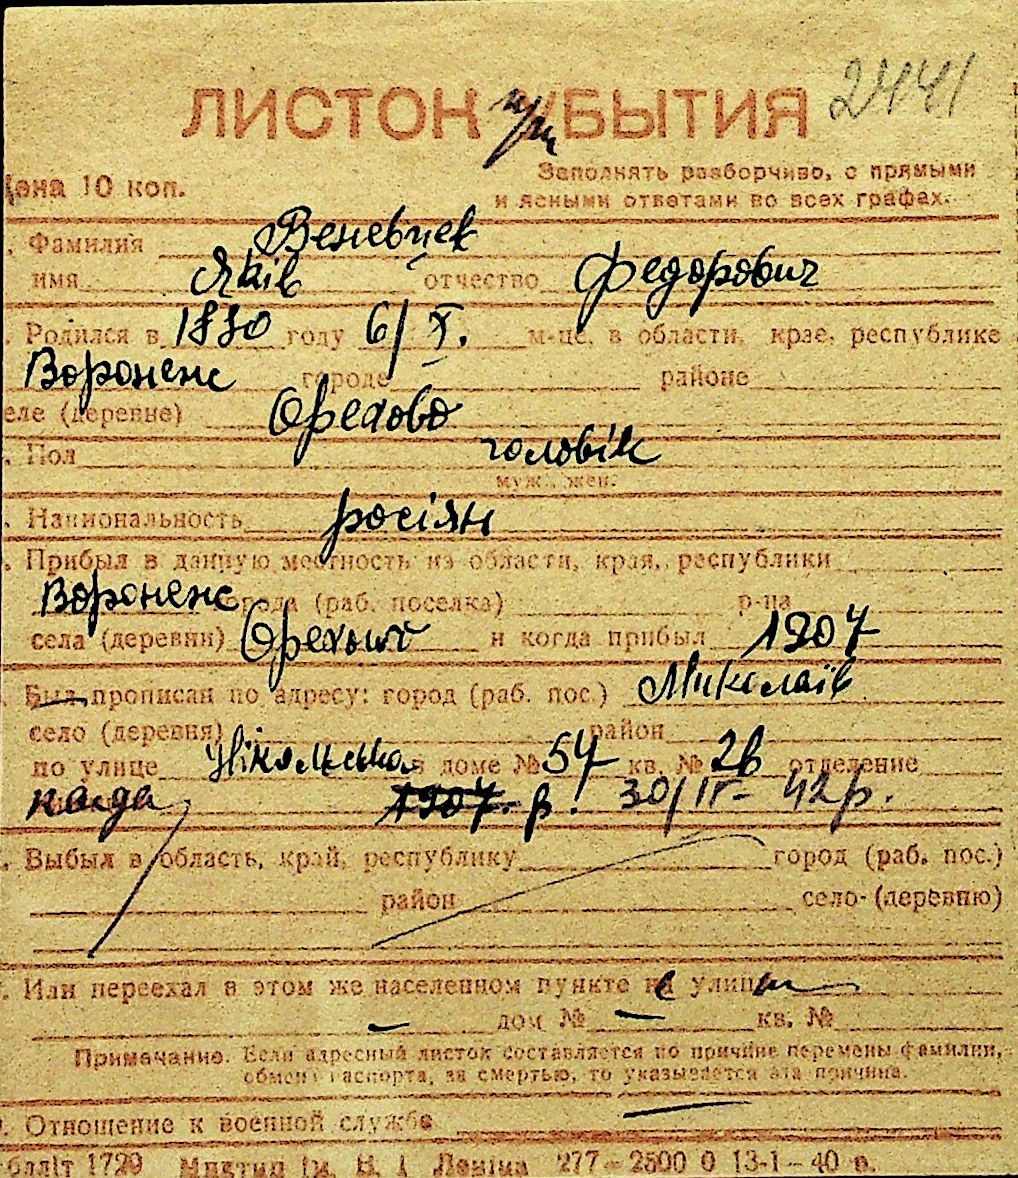 ЛИСТОК УБЫТИЯ 2441
Цена 10 коп. Заполнять разборчиво, с прямыми
и ясными ответами во всех графах.
Фамилия Веневцев
имя Яків отчество Федорович
Родился в 1880 году 6/X. м-це, в области, крае, республике
Вороненс городе районе
селе (деревне) Орехово
Пол чоловік
муж., жен.
Национальность росіян
Прибыл в данную местность из области, края, республики
Вороненс города (раб. поселка) р-на
села (деревни) и когда прибыл 1907
Был прописан по адресу: город (раб. пос.) Миколаїв
село (деревня) район
по улице Нікольська в доме № 57 кв. № 2в отделение
1907 р. 30/IV- 42 р.
Выбыл в область, край, республику город (раб. пос.)
район село (деревню)
Или переехал в этом же населенном пункте на улицу
дом № кв. №
Примечание. Если адресный листок составляется по причине перемены фамилии,
обмена паспорта, за смертью, то указывается эта причина.
Отношение к военной службе
1729 Леніна 277 – 2500 0 13-1 – 40 р.